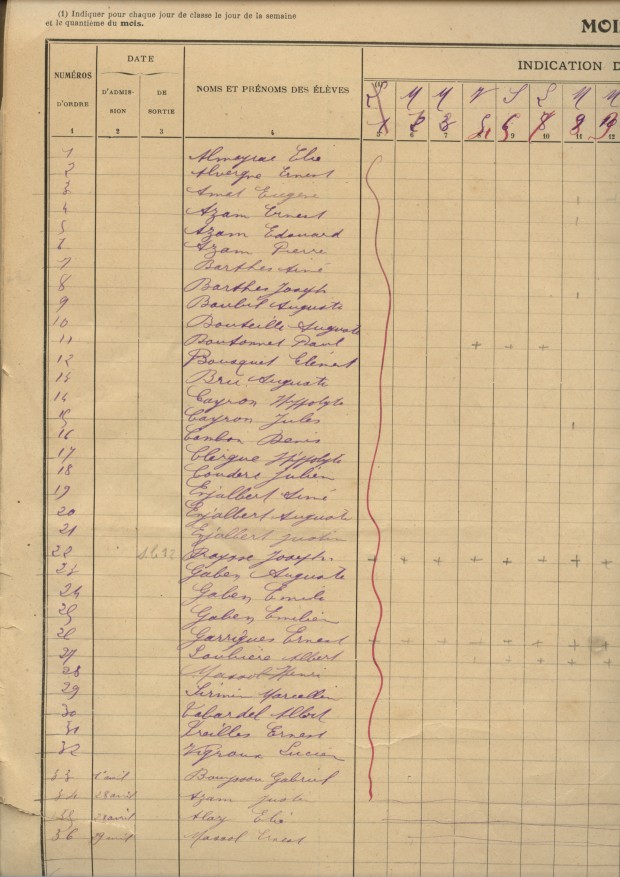 (1) Indiquer pour chaque jour de classe le jour de la semaine
et le quantième du mois.
MOI
NUMÉROS D'ORDRE
DATE
D'ADMISSION
DE SORTIE
NOMS ET PRÉNOMS DES ÉLÈVES
INDICATION D
(1)
M M V S L M M
1 2 3 4 5 6 7 8 9 10 11 12
1 Almeyrac Elie
2 Alvergne Ernest
3 Amat Eugène
4 Azam Ernest
5 Azam Edouard
6 Azam Pierre
7 Barthes Aimé
8 Barthes Joseph
9 Boubil Auguste
10 Bouteille Auguste
11 Boutonnet Paul + + +
12 Bousquet Clément
13 Bru Auguste
14 Cayron Hippolyte
15 Cayron Jules
16 Cambon Denis
17 Clergue Hippolyte
18 Couderc Julien
19 Enjalbert Aimé
20 Enjalbert Auguste
21 Enjalbert Justin
22 Joseph + + + + + + + +
23 Gaben Auguste
24 Gaben Emile
25 Gaben Emilien
26 Garrigues Ernest + + + + + + +
27 Loubière Albert + + + +
28 Massol Henri
29 Sirmin Marcellin
30 Tabardel Albert
31 Treilles Ernest
32 Vigroux Lucien
33 avril Gabriel
34 28 avril Azam
35 avril Alary Elie
36 avril Massol Ernest